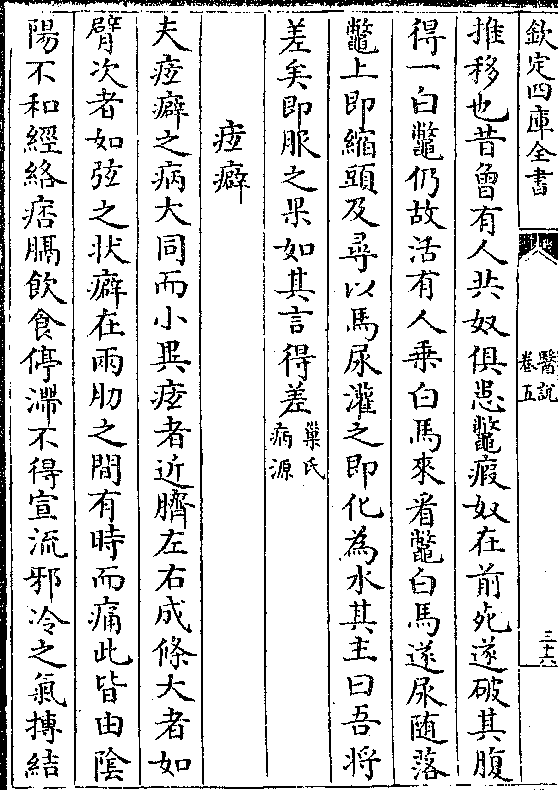 欽定四庫全書
醫說
卷五
三十六
推移也昔曾有人共奴俱患鼈瘕奴在前死遂破其腹
得一白鼈仍故活有人乗白馬來看鼈白馬遂尿随落
鼈上即縮頭及尋以馬尿灌之即化為水其主曰吾将
差矣即服之果如其言得差巢氏病源
痃癖
夫痃癖之病大同而小異痃者近臍左右成條大者如
臂次者如弦之状癖在兩肋之間有時而痛此皆由陰
陽不和經絡痞膈飲食停滯不得宣流邪冷之氣搏結